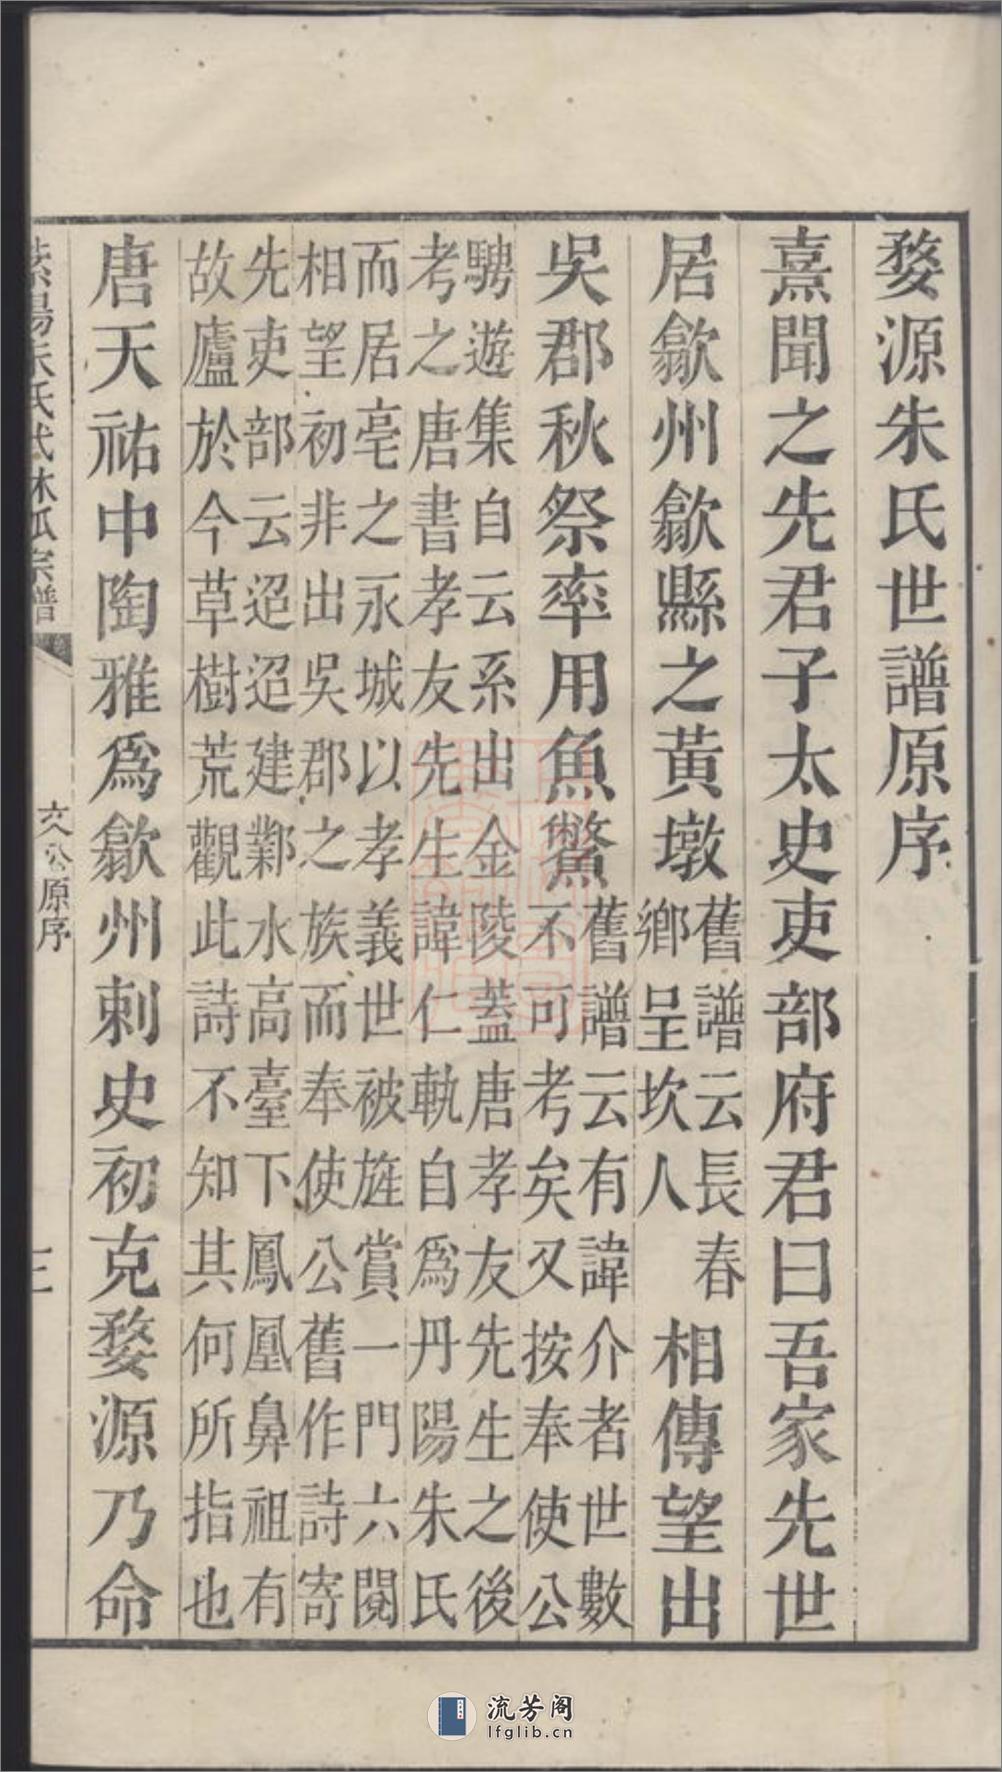 婺源朱氏世譜原序
熹聞之先君子太史吏部府君曰吾家先世
居歙州歙縣之黃墩舊譜云長春鄉呈坎人相傳望出
吳郡秋祭率用魚鱉舊譜云有諱介者世數不可考矣又按奉使公
騁遊集自云系出金陵蓋唐孝友先生之後考之唐書孝友先生諱仁軌自為丹陽朱氏
而居亳之永城以孝義世被旌賞一門六閿相望初非出吳郡之族而奉使公舊作詩寄
先吏部云迢迢建鄴水高臺下鳳凰鼻祖有故廬於今草樹荒觀此詩不知其何所指也
唐天祐中陶雅爲歙州刺史初克婺源乃命
紫陽朱氏武林派宗譜
文公原序
三
流芳阁
lfglib.cn